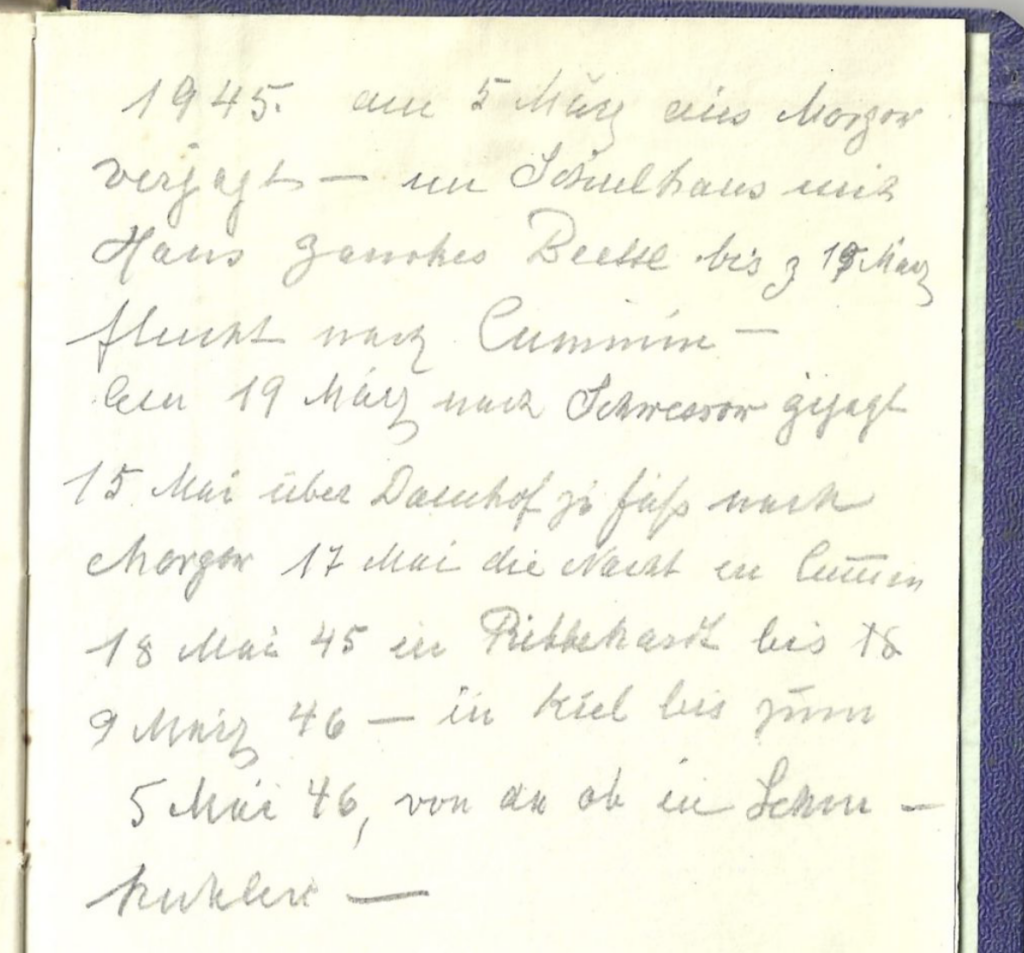 1945. am 5 März aus Morgow
verjagt — im Schulhaus mit
Hans bis z 19 März
flucht nach Cummin —
den 19 März nach Schwessow gejagt
15 Mai über Damhof zu fuß nach
Morgow 17 Mai die Nacht in Cum̅in
18 Mai 45 in Ribbekardt bis
9 März 46 — in Kiel bis zum
5 Mai 46, von da ab in